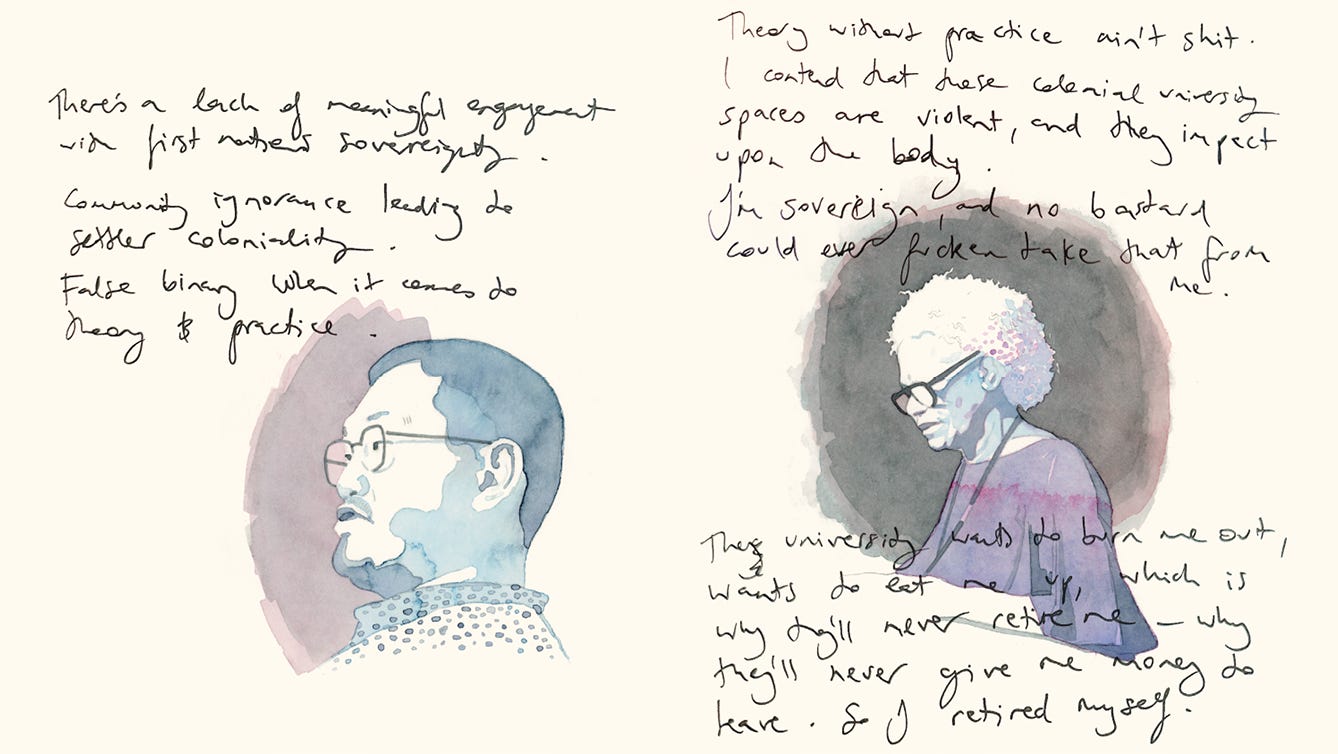 There's a lack of meaningful engagement
with first nations sovereignty.
Community ignorance leading to
settler coloniality.
False binary when it comes to
theory & practice.
Theory without practice ain't shit.
I contend that these colonial university
spaces are violent, and they impact
upon the body.
I'm sovereign, and no bastard
could ever fucken take that from
me.
They university wants to burn me out,
wants to eat me up, which is
why they'll never retire me – why
they'll never give me money to
leave. So I retired myself.